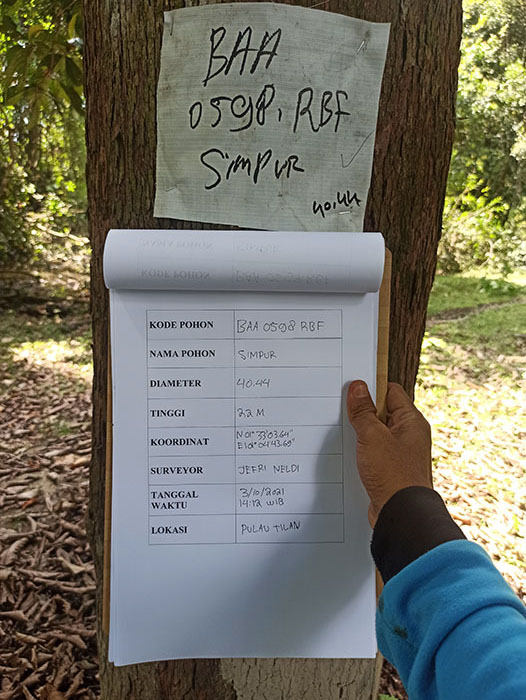 BAA
0598, RBF
SIMPUR
40.44
KODE POHON BAA 0598 RBF
NAMA POHON SIMPUR
DIAMETER 40.44
TINGGI 22 M
KOORDINAT N 01° 33'03.64"
E 101° 04'43.69"
SURVEYOR JEFRI NELDI
TANGGAL 3/10/2021
WAKTU 14:12 WIB
LOKASI PULAU TILAN